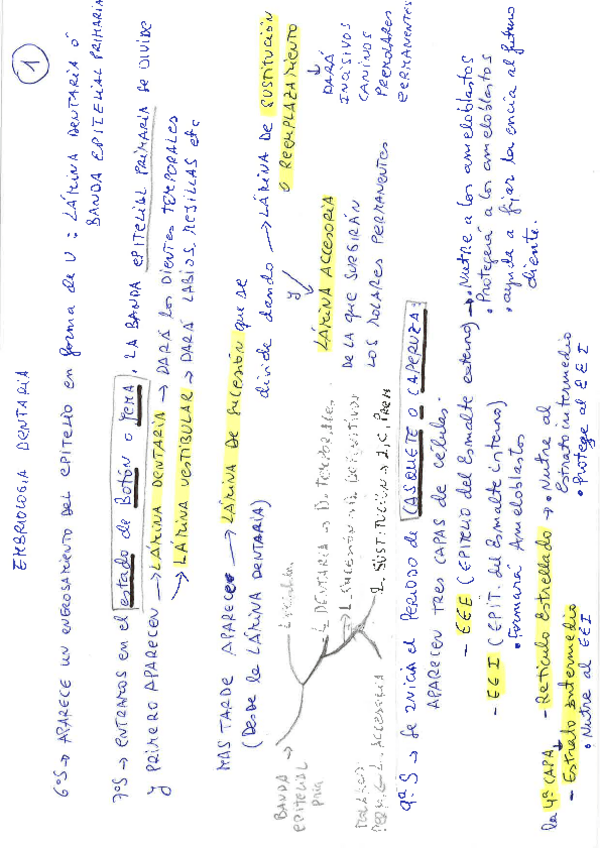 1
EMBRIOLOGIA DENTARIA
6ºS → APARECE UN ENGROSAMIENTO DEL EPITELIO en forma de U : LÁMINA DENTARIA ó
BANDA EPITELIAL PRIMARIA
7ºS → ENTRAMOS en el estado de Botón o YEMA. LA BANDA EPITELIAL PRIMARIA Se DIVIDE
y PRIMERO APARECEN → LÁMINA DENTARIA → DARÁ los DIENTES TEMPORALES
→ LÁMINA VESTIBULAR → DARÁ LABIOS, MEJILLAS etc
MAS TARDE APARECE → LÁMINA DE SUCESIÓN que se
(Desde la LÁMINA DENTARIA)
divide dando → LÁMINA DE SUSTITUCIÓN
O REEMPLAZAMIENTO
↓
DARÁ
INCISIVOS
CANINOS
PREMOLARES
PERMANENTES
y
LÁMINA ACCESORIA
DE LA QUE SURGIRÁN
LOS MOLARES PERMANENTES
BANDA
EPITELIAL →
PRIA
L. DENTARIA → D. TEMPORALES.
L. SUCESIÓN → D. DEFINITIVOS
L. SUSTITUCIÓN → I, C, PREM
L. ACCESORIA
9ª S → Se INICIA el PERIODO de CASQUETE O CAPERUZA:
APARECEN TRES CAPAS de células.
- EEE (EPITELIO del Esmalte externo) → • Nutre a los ameloblastos
• Protegerá a los ameloblastos
• ayuda a fijar la encia al futuro
diente.
- EEI (EPIT. del Esmalte interno)
• Formará Ameloblastos
la 4ª CAPA - Retículo Estrellado → • Nutre al
Estrato intermedio
• Protege al EEI
- Estrato Intermedio
• Nutre al EEI